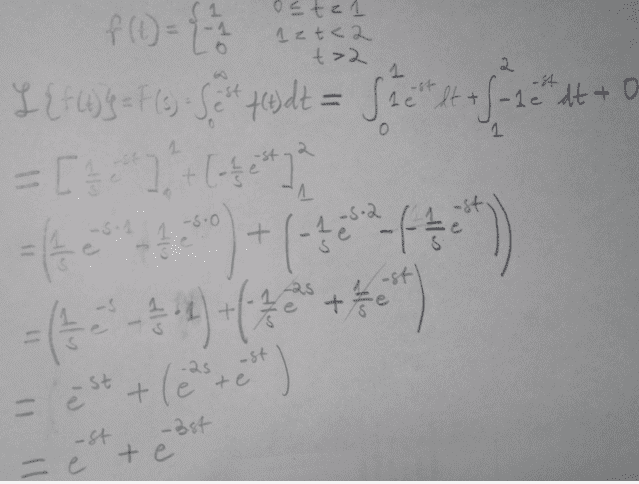 f(t) = { 1 0 ≤ t < 1
-1 1 < t < 2
0 t > 2
ℒ{f(t)} = F(s) = ∫₀^∞ e^{-st} f(t) dt = ∫₀^1 1e^{-st} dt + ∫₁^2 -1e^{-st} dt + 0
= [1/s e^{-st}]₀^1 + [-1/s e^{-st}]₁^2
= (1/s e^{-s·1} - 1/s e^{-s·0}) + (-1/s e^{-s·2} - (-1/s e^{-st}))
= (1/s e^{-s} - 1/s · 1) + (-1/s e^{-2s} + 1/s e^{-st})
= e^{-st} + (e^{-2s} + e^{-st})
= e^{-st} + e^{-3st}